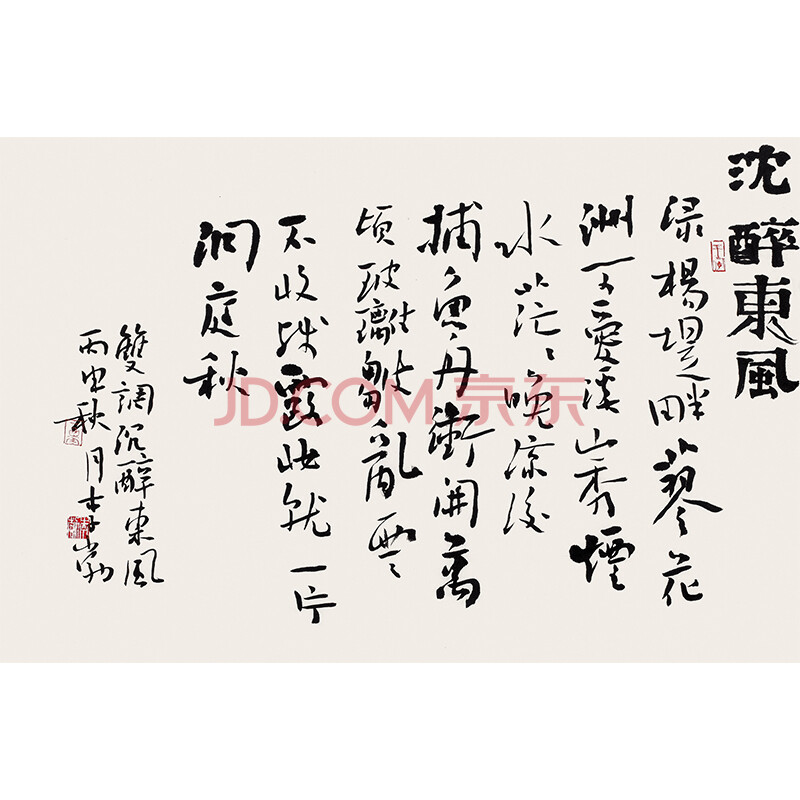 沈醉東風
綠楊堤畔蓼花
洲可愛溪山秀煙
水茫〻晚涼後
捕魚舟衝開萬
頃玻璃皺亂雲
不收殘霞妝就一片
洞庭秋
雙調沉醉東風
丙申秋月李
JD.COM 京东